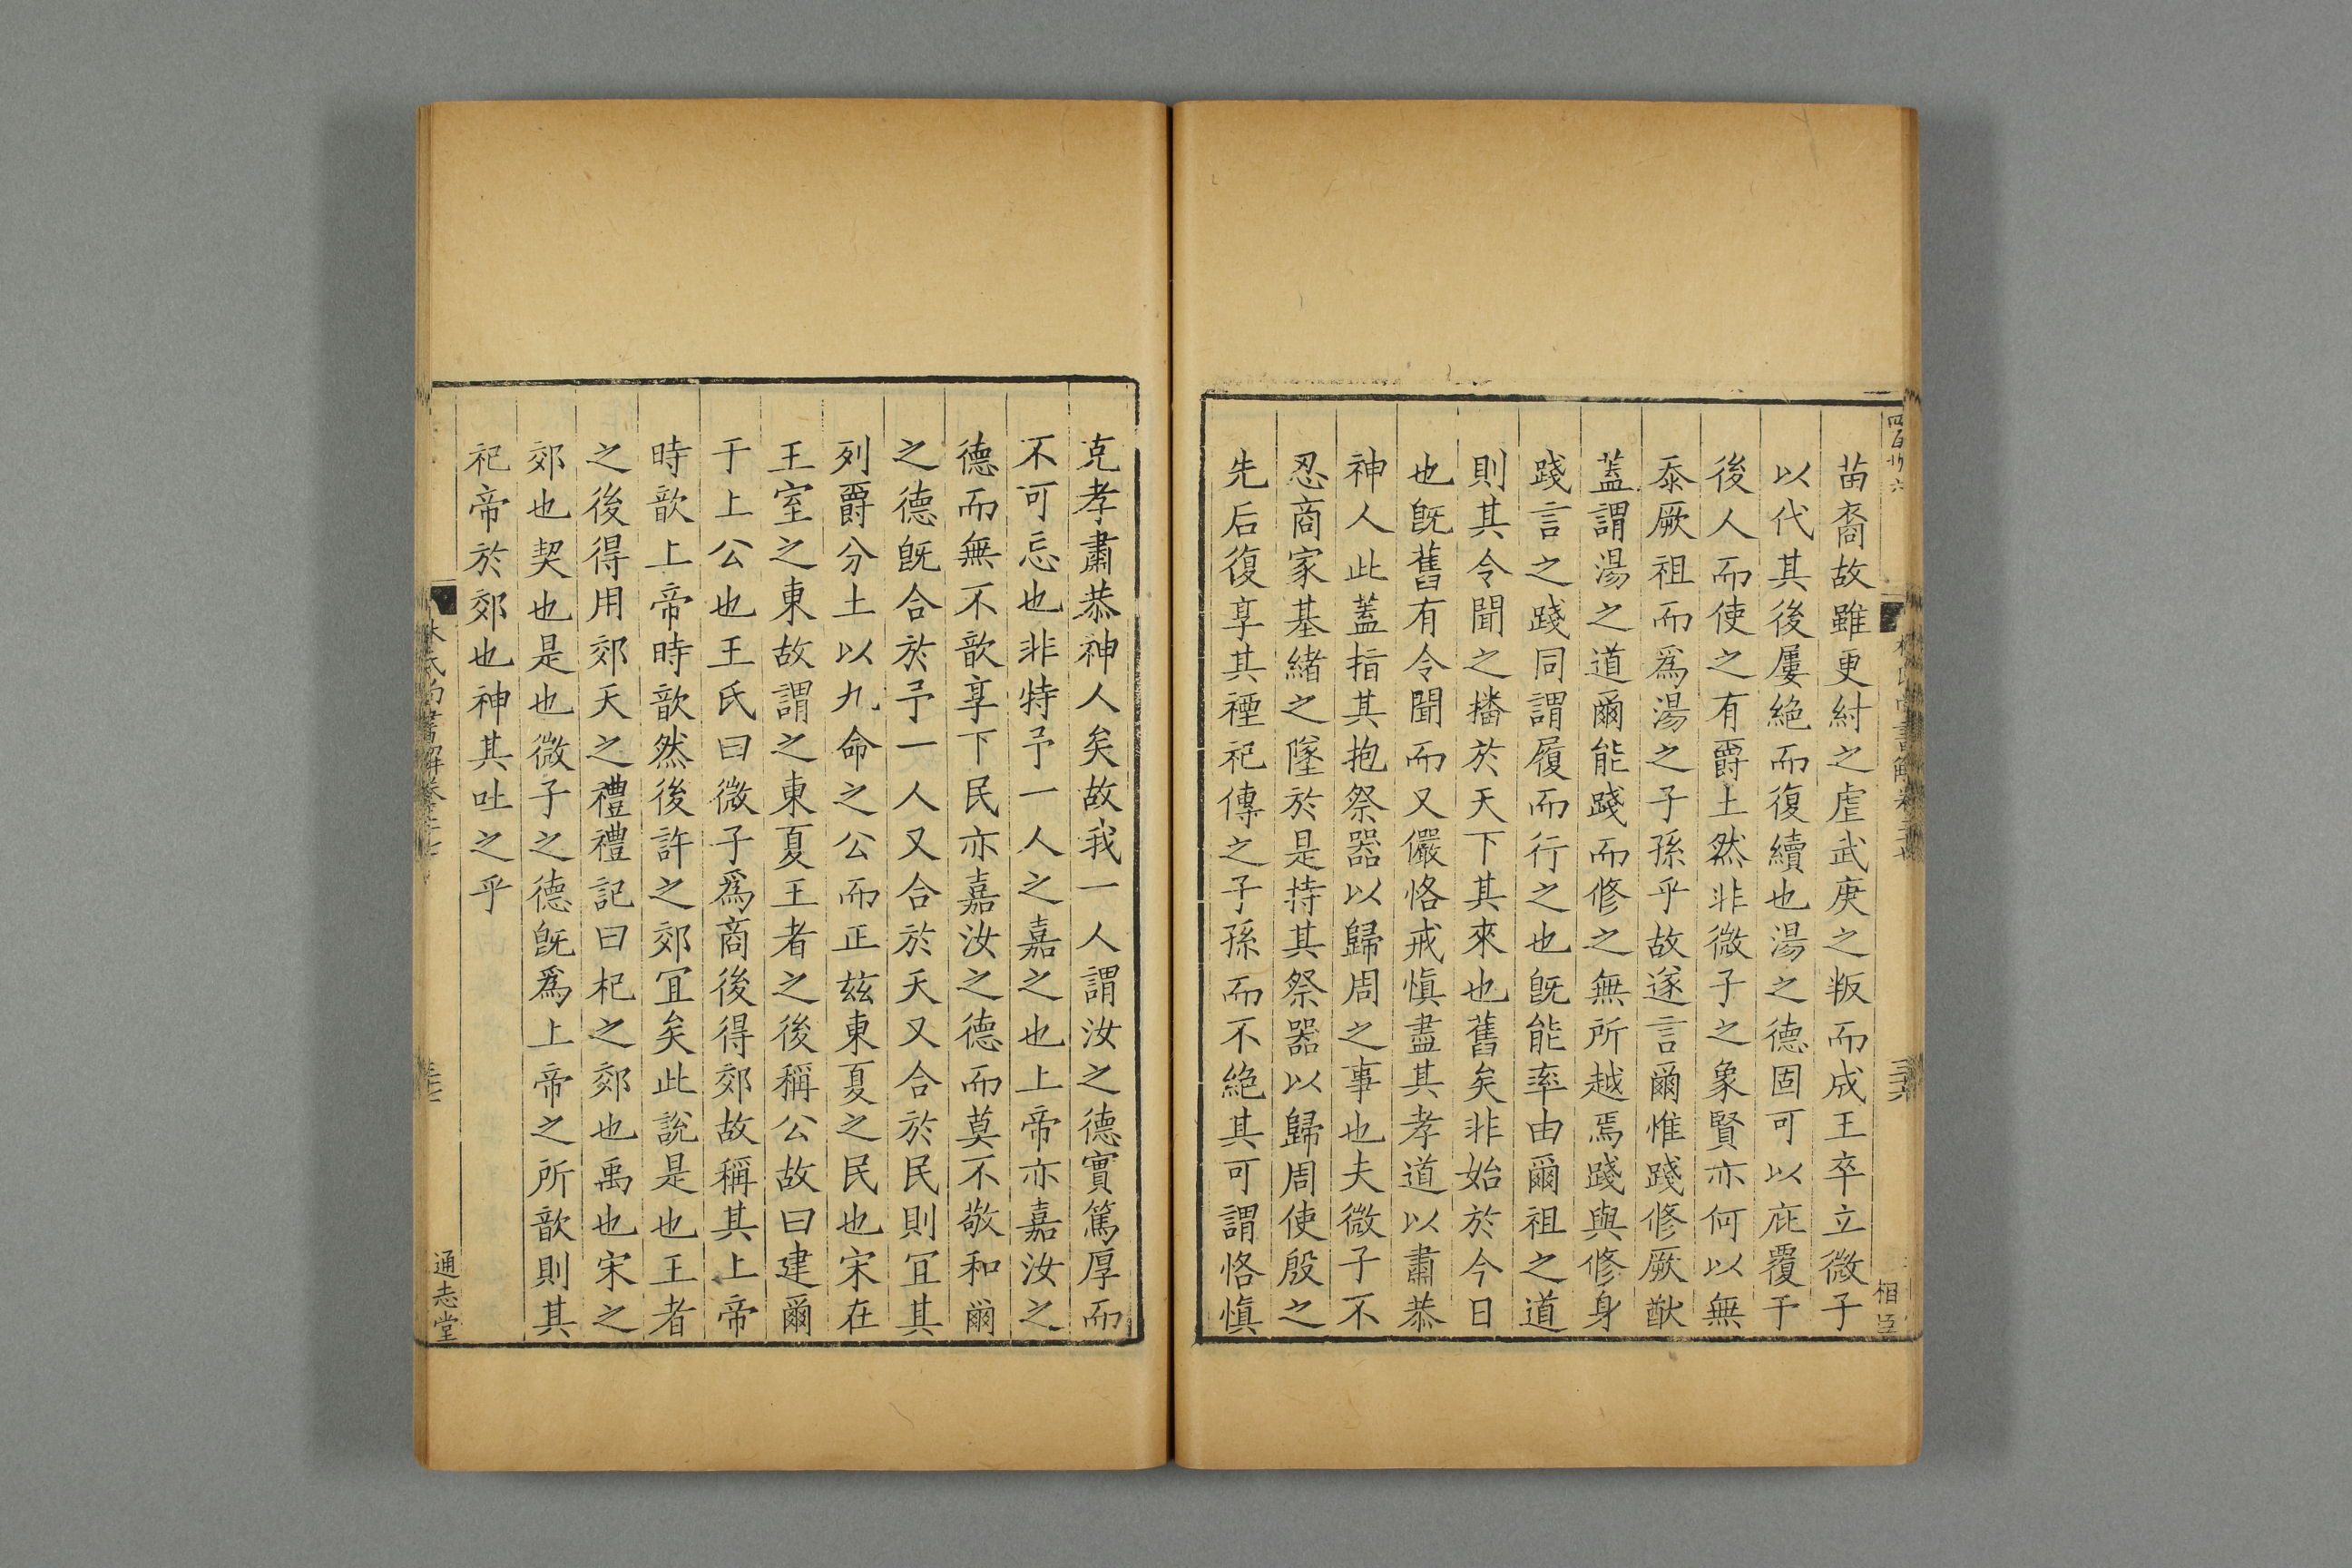 苗裔故雖更紂之虐武庚之叛而成王卒立微子
以代其後屢絶而復續也湯之德固可以庇覆于
後人而使之有爵土然非微子之象賢亦何以無
忝厥祖而爲湯之子孫乎故遂言爾惟踐修厥猷
蓋謂湯之道爾能踐而修之無所越焉踐與修身
踐言之踐同謂履而行之也旣能率由爾祖之道
則其令聞之播於天下其來也舊矣非始於今日
也旣舊有令聞而又儼恪戒愼盡其孝道以肅恭
神人此蓋指其抱祭器以歸周之事也夫微子不
忍商家基緒之墜於是持其祭器以歸周使殷之
先后復享其禋祀傳之子孫而不絶其可謂恪愼
克孝肅恭神人矣故我一人謂汝之德實篤厚而
不可忘也非特予一人之嘉之也上帝亦嘉汝之
德而無不歆享下民亦嘉汝之德而莫不敬和爾
之德旣合於予一人又合於天又合於民則冝其
列爵分土以九命之公而正兹東夏之民也宋在
王室之東故謂之東夏王者之後稱公故曰建爾
于上公也王氏曰微子爲商後得郊故稱其上帝
時歆上帝時歆然後許之郊冝矣此說是也王者
之後得用郊天之禮禮記曰杞之郊也禹也宋之
郊也契也是也微子之德旣爲上帝之所歆則其
祀帝於郊也神其吐之乎
通志堂